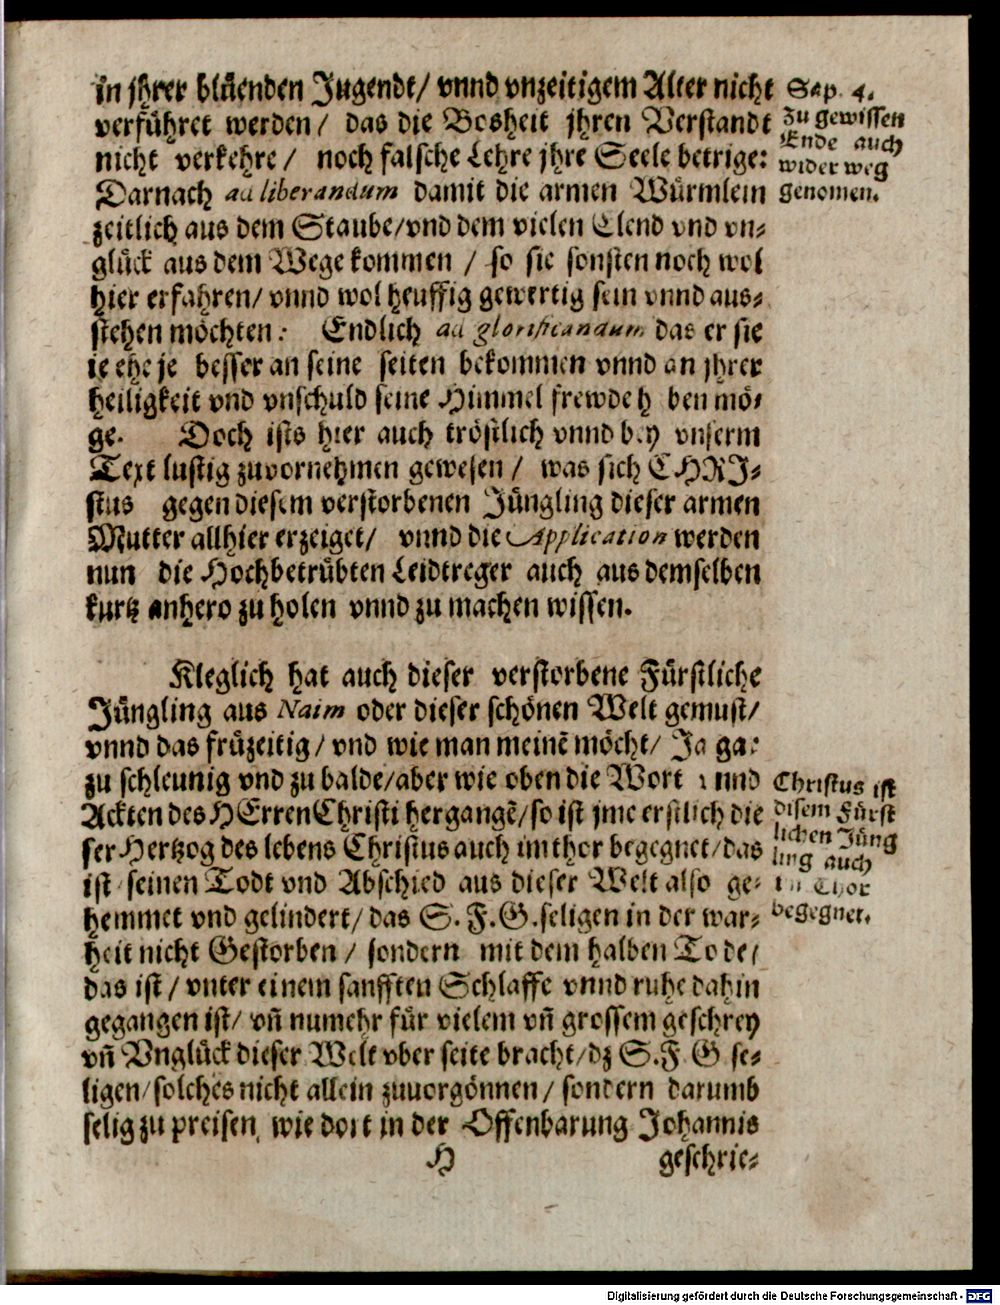 in jhrer blüenden Jugendt/ vnnd vnzeitigem Alter nicht
verführet werden/ das die Bosheit jhren Verstandt
nicht verkehre/ noch falsche Lehre jhre Seele betrige:
Darnach ad liberandum damit die armen Würmlein
zeitlich aus dem Staube/vnd dem vielen Elend vnd vn-
glück aus dem Wege kommen / so sie sonsten noch wol
hier erfahren/ vnnd wol heuffig gewertig sein vnnd aus-
stehen möchten: Endlich ad glorificandum das er sie
ie ehe je besser an seine seiten bekommen vnnd an jhrer
heiligkeit vnd vnschuld seine Himmel frewde h ben mö-
ge. Doch ists hier auch tröstlich vnnd bey vnserm
Text lustig zuvornehmen gewesen / was sich CHRI-
stus gegen diesem verstorbenen Jüngling dieser armen
Mutter allhier erzeiget/ vnnd die Application werden
nun die Hochbetrübten Leidtreger auch aus demselben
kurtz anhero zu holen vnnd zu machen wissen.
Kleglich hat auch dieser verstorbene Fürstliche
Jüngling aus Naim oder dieser schönen Welt gemust/
vnnd das früzeitig/ vnd wie man meinē möcht/ Ja gar
zu schleunig vnd zu balde/aber wie oben die Wort vnnd
Ackten des HErren Christi hergangē/so ist jme erstlich die
ser Hertzog des lebens Christus auch im thor begegnet/das
ist seinen Todt vnd Abschied aus dieser Welt also ge-
hemmet vnd gelindert/ das S. F. G. seligen in der war-
heit nicht Gestorben / sondern mit dem halben Tode/
das ist / vnter einem sanfften Schlaffe vnnd ruhe dahin
gegangen ist/ vñ numehr für vielem vñ grossem geschrey
vñ Vnglück dieser Welt vber seite bracht/dz S. F. G se-
ligen/solches nicht allein zuuorgönnen / sondern darumb
selig zu preisen, wie dort in der Offenbarung Johannis
H geschrie-
Sap. 4.
Zu gewissen
Ende auch
wider weg
genomen.
Christus ist
disem Fürst
lichen Jüng
ling auch
im Thor
begegnet.
Digitalisierung gefördert durch die Deutsche Forschungsgemeinschaft - DFG